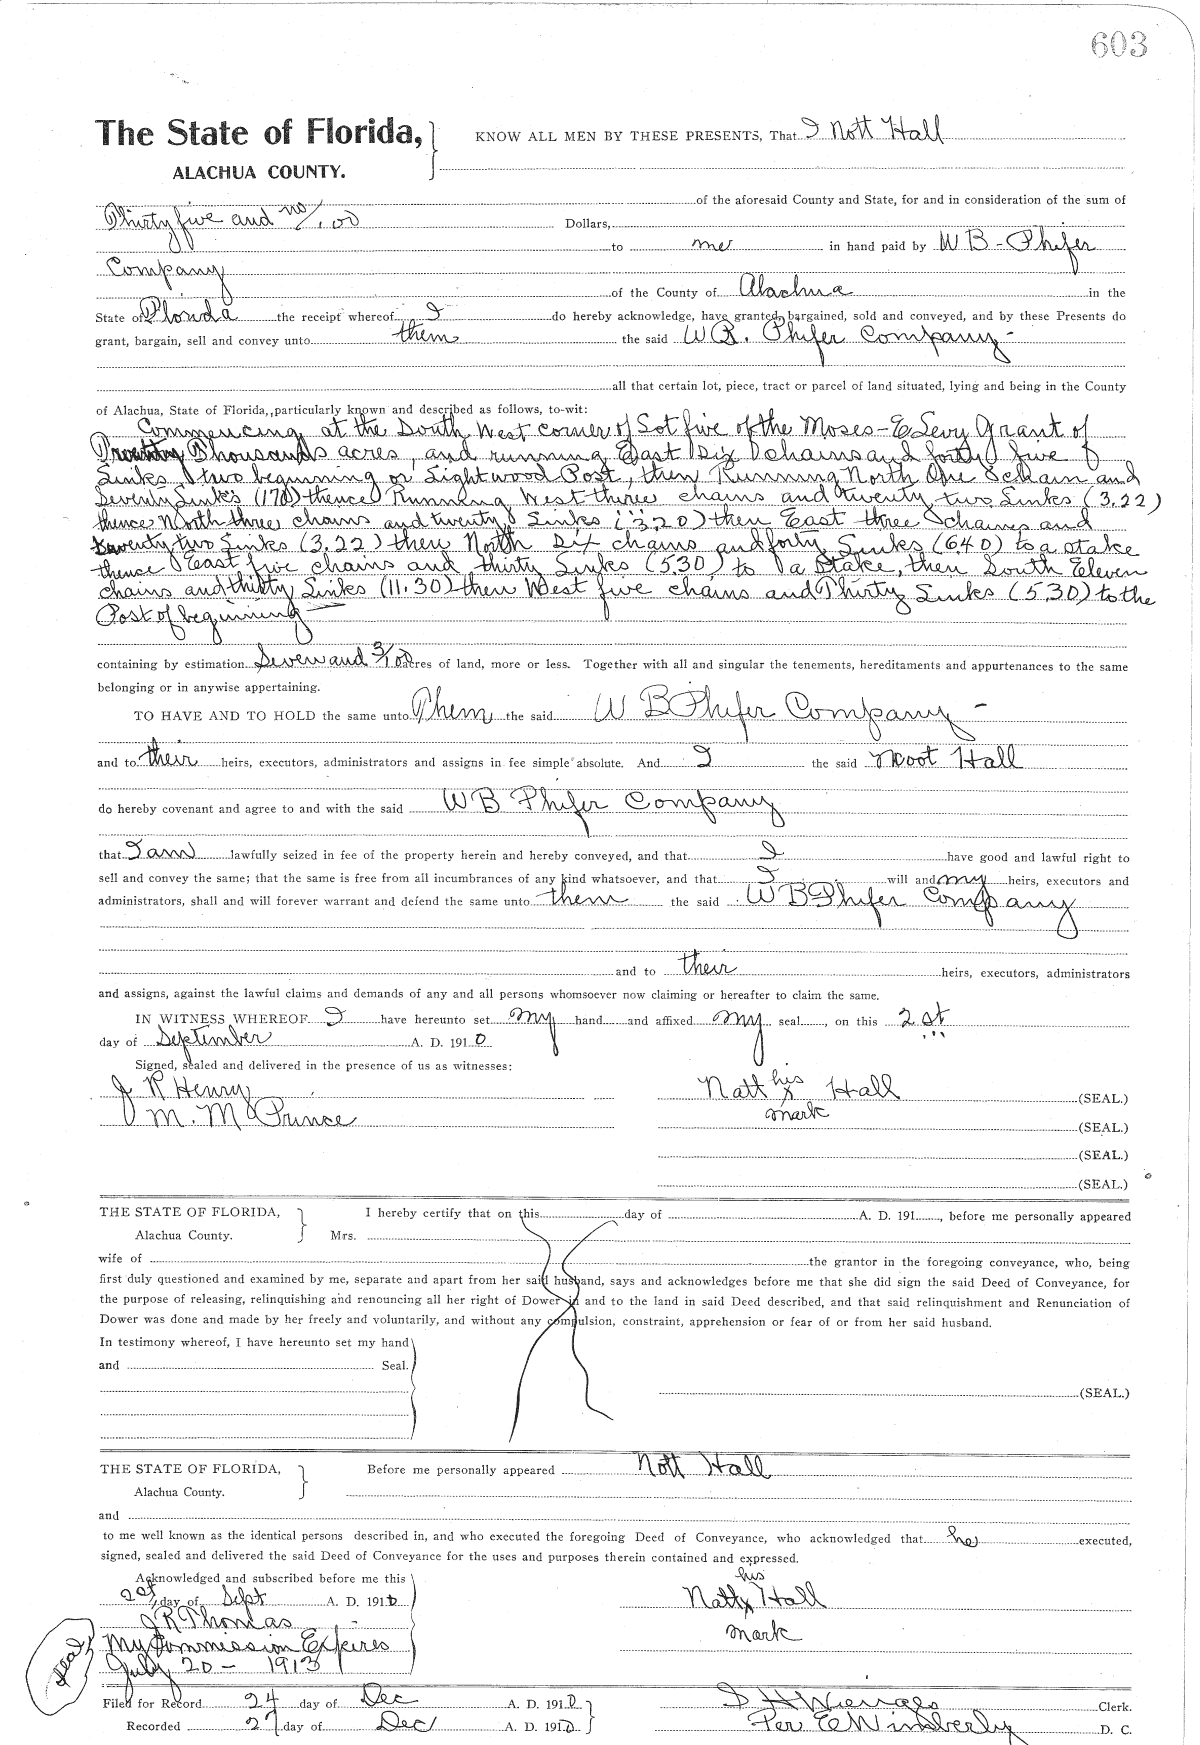 603
The State of Florida,
ALACHUA COUNTY.
KNOW ALL MEN BY THESE PRESENTS, That I Nott Hall
of the aforesaid County and State, for and in consideration of the sum of
Thirty five and no/100 Dollars,
to me in hand paid by W B - Phifer
Company
of the County of Alachua in the
State of Florida the receipt whereof I do hereby acknowledge, have granted, bargained, sold and conveyed, and by these Presents do
grant, bargain, sell and convey unto them the said W B. Phifer Company -
all that certain lot, piece, tract or parcel of land situated, lying and being in the County
of Alachua, State of Florida, particularly known and described as follows, to-wit:
Commencing at the South West corner of Lot five of the Moses - E Levy Grant of
Thousands acres, and running East Six Chains and forty five
Links, two beginning or Lightwood Post, then Running North One Chain and
Seventy Links (170) thence Running West three chains and twenty two Links (3.22)
thence North three chains and twenty Links (320) then East three chains and
twenty two Links (3.22) then North Six chains and forty Links (640) to a stake
thence East five chains and thirty Links (530) to a Stake, then South Eleven
chains and thirty Links (11.30) then West five chains and Thirty Links (5.30) to the
Post of beginning
containing by estimation Seven and 3/100 acres of land, more or less. Together with all and singular the tenements, hereditaments and appurtenances to the same
belonging or in anywise appertaining.
TO HAVE AND TO HOLD the same unto Them the said W B Phifer Company -
and to their heirs, executors, administrators and assigns in fee simple absolute. And I the said Noot Hall
do hereby covenant and agree to and with the said W B Phifer Company
that I am lawfully seized in fee of the property herein and hereby conveyed, and that I have good and lawful right to
sell and convey the same; that the same is free from all incumbrances of any kind whatsoever, and that I will and my heirs, executors and
administrators, shall and will forever warrant and defend the same unto them the said W B Phifer Company
and to their heirs, executors, administrators
and assigns, against the lawful claims and demands of any and all persons whomsoever now claiming or hereafter to claim the same.
IN WITNESS WHEREOF I have hereunto set my hand and affixed my seal, on this 2 st
day of September A. D. 1910
Signed, sealed and delivered in the presence of us as witnesses:
J R Henry
M. McPrince
Natt his x Hall (SEAL.)
mark
(SEAL.)
(SEAL.)
(SEAL.)
THE STATE OF FLORIDA,
Alachua County.
I hereby certify that on this day of A. D. 191, before me personally appeared
Mrs.
wife of the grantor in the foregoing conveyance, who, being
first duly questioned and examined by me, separate and apart from her said husband, says and acknowledges before me that she did sign the said Deed of Conveyance, for
the purpose of releasing, relinquishing and renouncing all her right of Dower in and to the land in said Deed described, and that said relinquishment and Renunciation of
Dower was done and made by her freely and voluntarily, and without any compulsion, constraint, apprehension or fear of or from her said husband.
In testimony whereof, I have hereunto set my hand
and Seal.
(SEAL.)
THE STATE OF FLORIDA,
Alachua County.
Before me personally appeared Nott Hall
and
to me well known as the identical persons described in, and who executed the foregoing Deed of Conveyance, who acknowledged that he executed,
signed, sealed and delivered the said Deed of Conveyance for the uses and purposes therein contained and expressed.
Acknowledged and subscribed before me this
2st day of Sept A. D. 1910
J R Thomas
My Commission Expires
July 20 - 1913
Seal
his
Natt x Hall
mark
Filed for Record 24 day of Dec A. D. 1910
Recorded 27 day of Dec A. D. 1910
S H Wienges Clerk.
Per E Wimberly D. C.